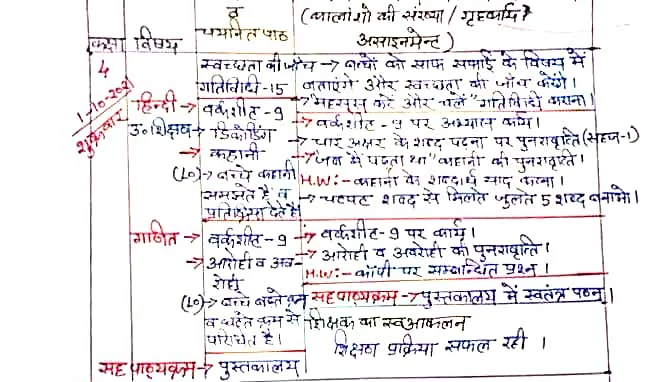 व
चयनित पाठ
(बालांशो की संख्या / गृहकार्य?
असाइनमेन्ट)
कक्षा विषय
4
1-10-2021
शुक्रवार
स्वच्छता की जाँच → बच्चों को साफ सफाई के विषय में
गतिविधि-15 बताएंगे और स्वच्छता की जाँच करेंगे।
→ "महसूस करें और चलें" गतिविधि कराना।
हिन्दी → वर्कशीट-9 → वर्कशीट-9 पर अभ्यास कार्य।
उ०शिक्षण → डिकोडिंग → चार अक्षर के शब्द पढ़ना पर पुनरावृत्ति (सहज-1)
→ कहानी → "जब मैं पढ़ता था" कहानी की पुनरावृत्ति।
(Lo) → बच्चे कहानी H.W:- कहानी के शब्दार्थ याद करना।
समझते हैं व → चटपट शब्द से मिलते जुलते 5 शब्द बनाओ।
प्रतिक्रिया देते हैं
गणित → वर्कशीट-9 → वर्कशीट-9 पर कार्य।
→ आरोही व अव- → आरोही व अवरोही की पुनरावृत्ति।
रोही H.W:- कॉपी पर सम्बन्धित प्रश्न।
(Lo) → बच्चे बढ़ते क्रम सह पाठ्यक्रम → पुस्तकालय में स्वतंत्र पठन।
व घटते क्रम से शिक्षक का स्वआकलन
परिचित है। शिक्षण प्रक्रिया सफल रही।
सह पाठ्यक्रम → पुस्तकालय।